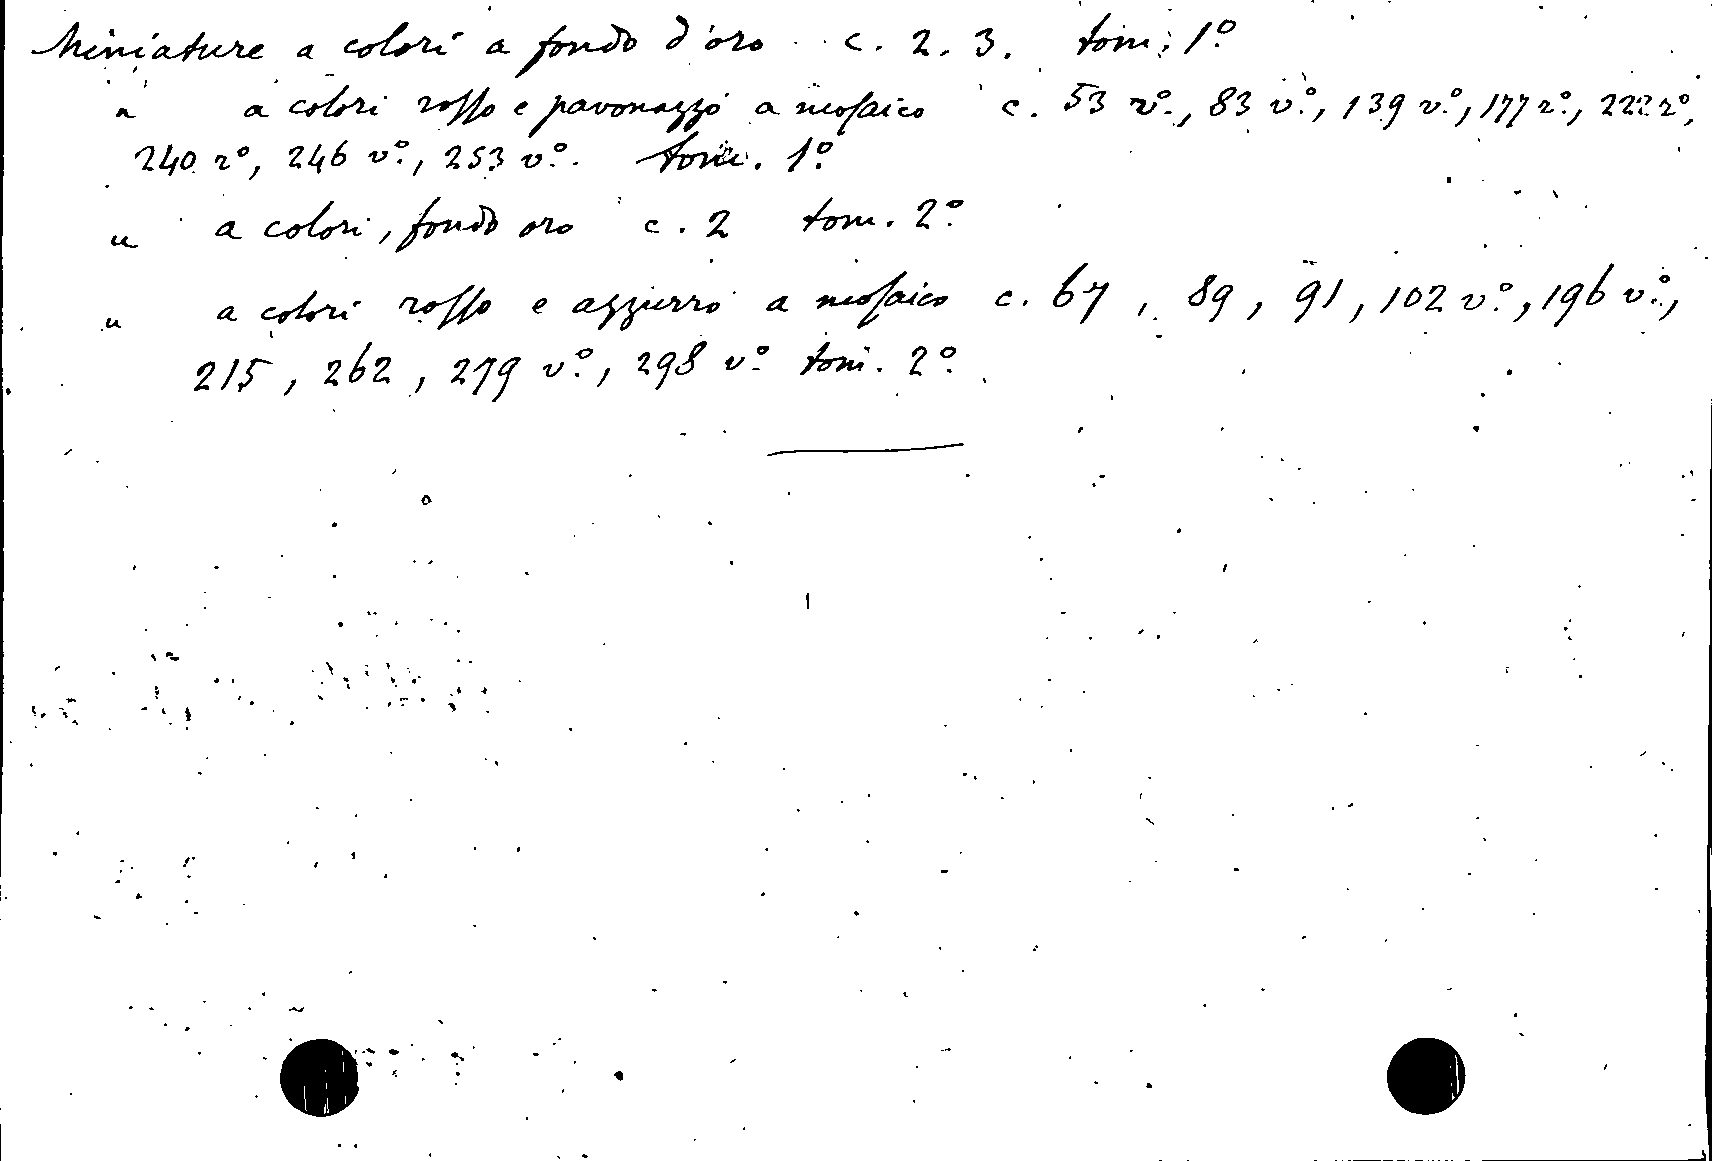 Miniature a colori a fondo d'oro c. 2. 3. tom. 1º.
" a colori rosso e pavonazzo a mosaico c. 53 rº., 83 vº., 139 vº., 177 rº., 222 rº,
240 rº, 246 vº., 253 vº. tom. 1º.
" a colori, fondo oro c. 2 tom. 2º.
" a colori rosso e azzurro a mosaico c. 67, 89, 91, 102 vº., 196 vº.,
215, 262, 279 vº., 298 vº. tom. 2º.